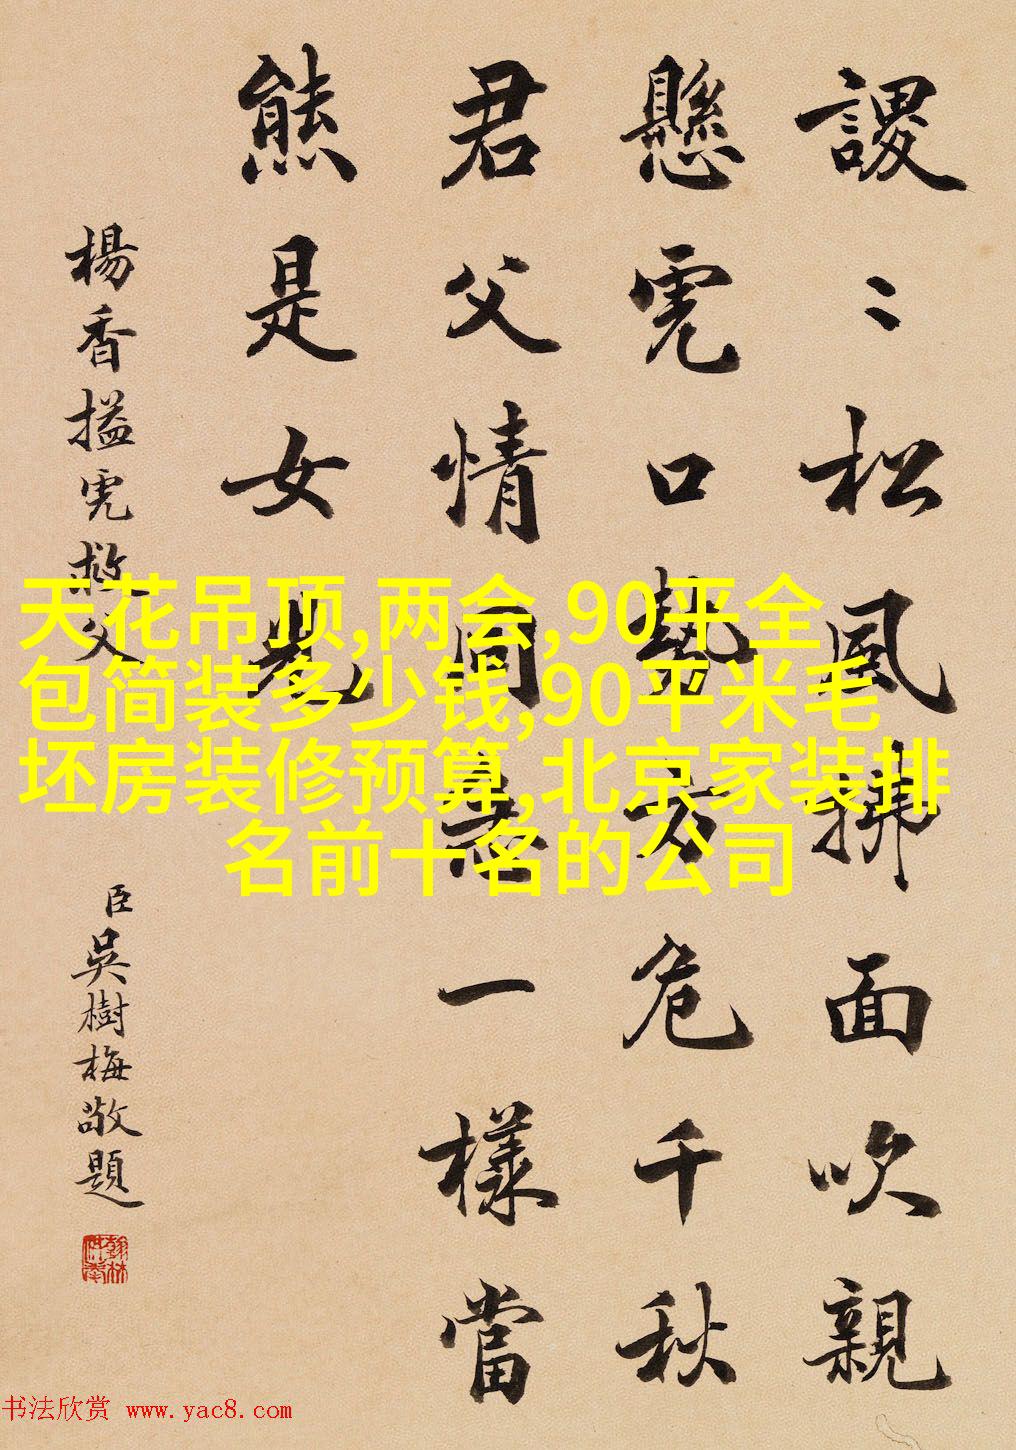 謖〻松風拂面吹親
懸虎口勢方危千秋
君父情同急一樣當
熊是女兒
楊香搤虎救父
臣吳樹梅敬題
天花吊顶,两会,90平全
包简装多少钱,90平米毛
坯房装修预算,北京家装排
名前十名的公司
书法欣赏 www.yac8.com